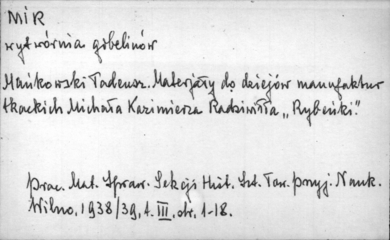 MIR
wytwórnia gobelinów
Mańkowski Tadeusz. Materjały do dziejów manufaktur
tkackich Michała Kazimierza Radziwiłła „Rybeńki".
Prac. Mat. Spraw. Sekcji Hist. Szt. Tow. Przyj. Nauk.
Wilno, 1938/39, t. III, str. 1-18.